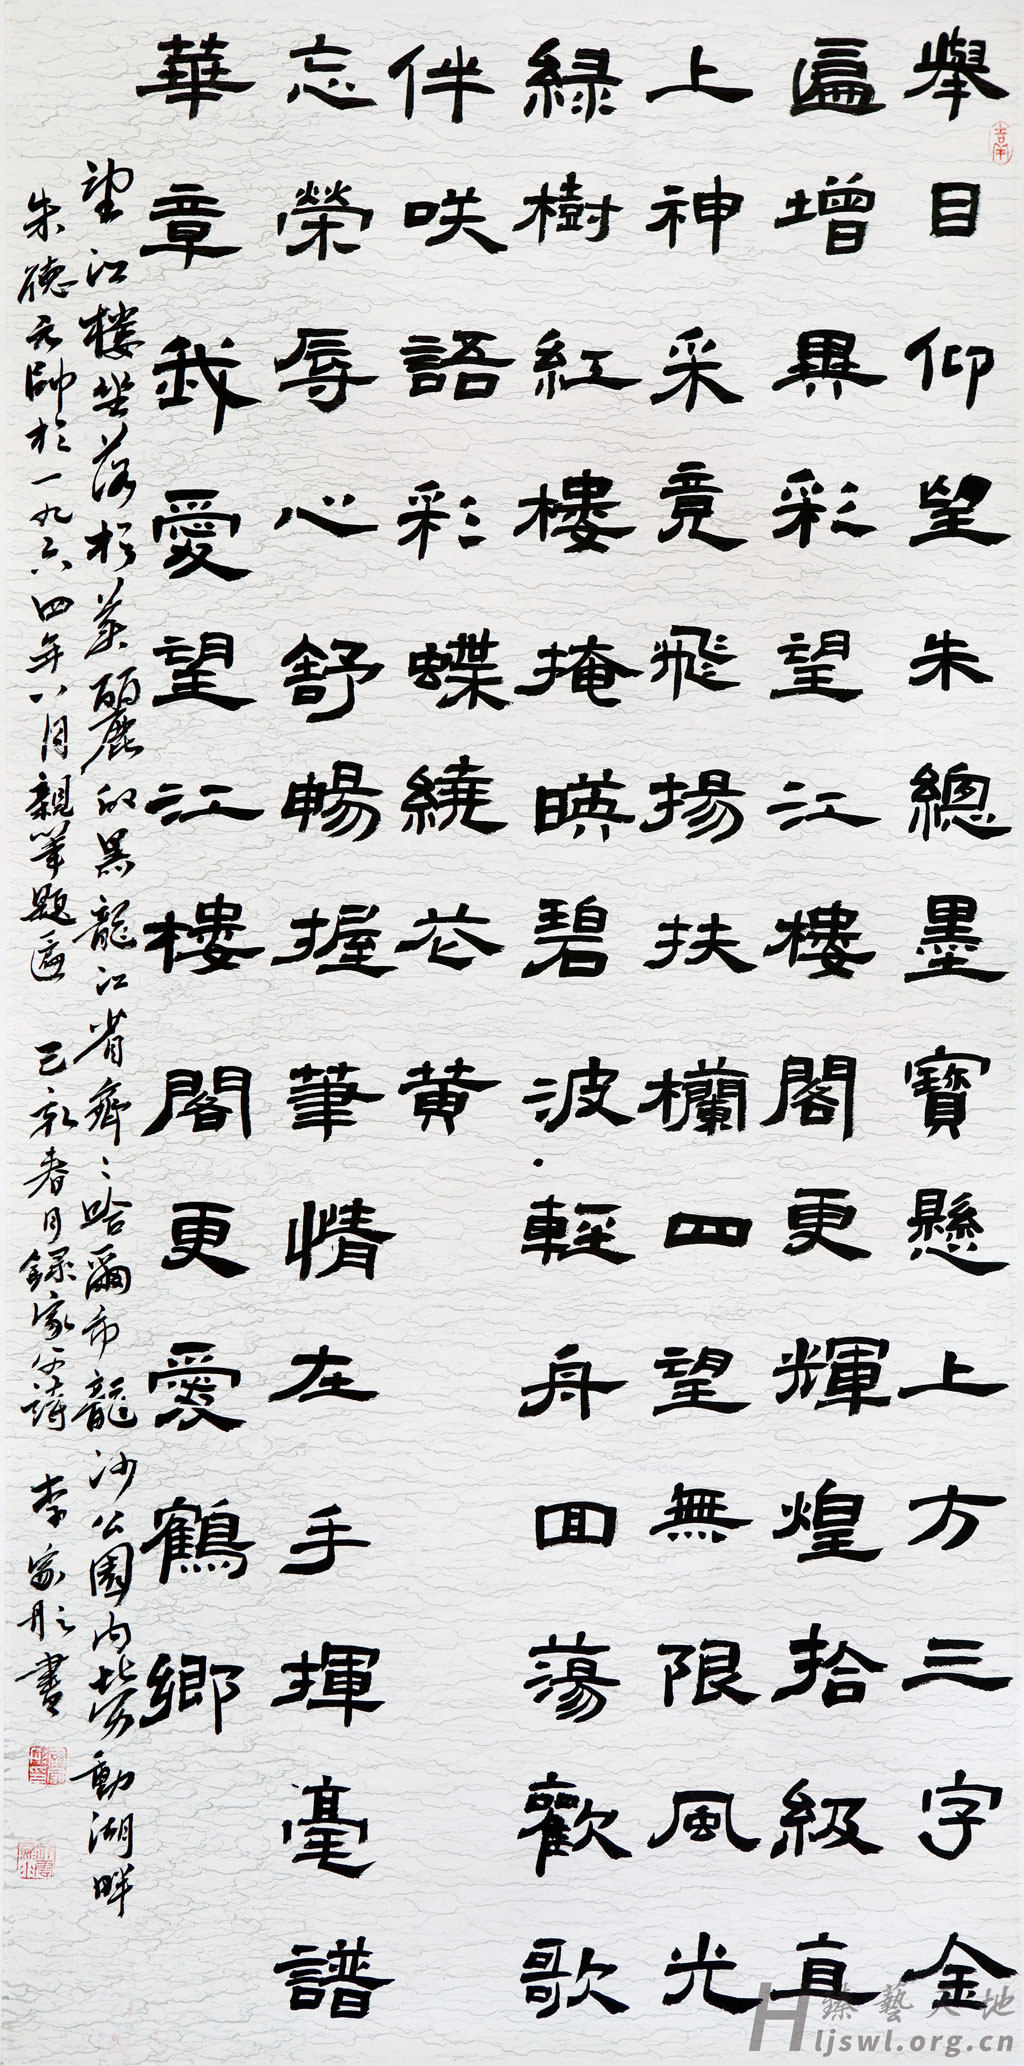 舉目仰望朱總墨寶懸上方三字金
匾增異彩望江樓閣更輝煌拾級直
上神采竟飛揚扶欄四望無限風光
緑樹紅樓掩暎碧波輕舟回蕩歡歌
伴咲語彩蝶繞花黄
忘榮辱心舒暢握筆情在手揮毫譜
華章我愛望江樓閣更愛鶴鄉
望江樓坐落於美麗的黑龍江省齊々哈爾市龍沙公園内勞動湖畔
朱德元帥於一九六四年八月親筆題匾 己亥春月録家父詩 李家彤書
臻藝天地
Hljswl.org.cn